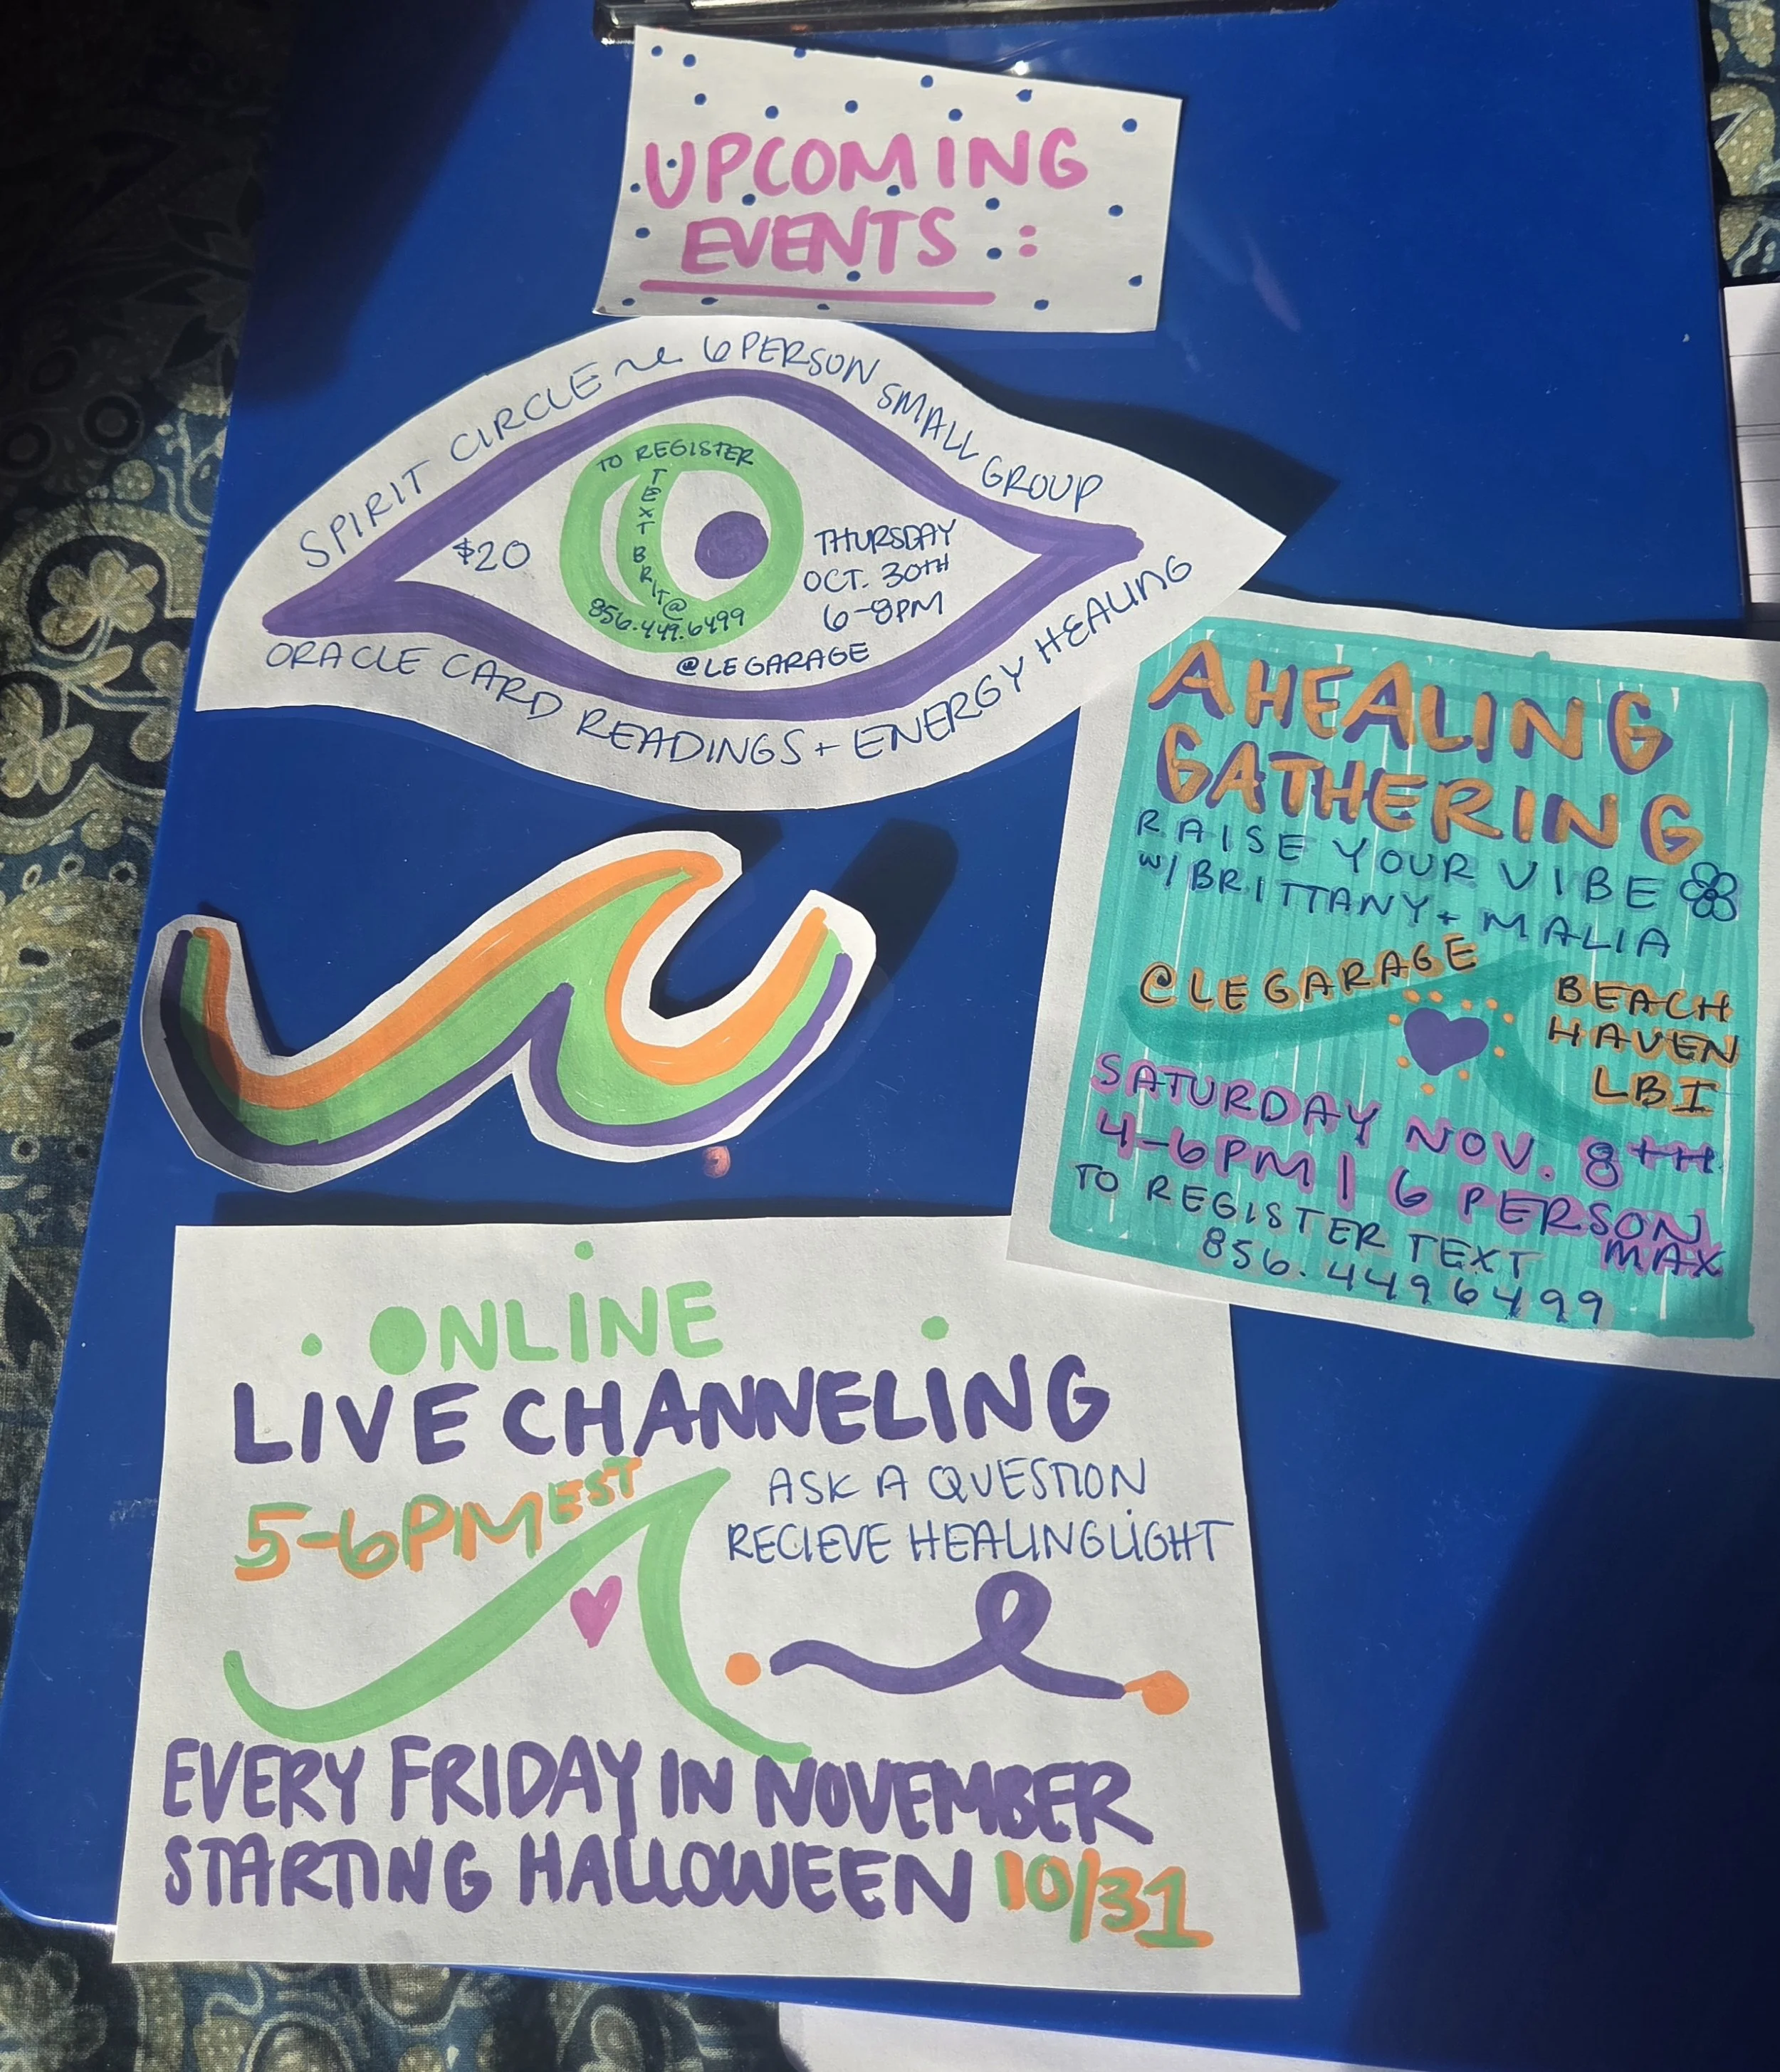 UPCOMING
EVENTS :
SPIRIT CIRCLE ~ 6 PERSON SMALL GROUP
TO REGISTER
TEXT BRIT@
856.449.6499
$20
THURSDAY
OCT. 30TH
6-8PM
@LEGARAGE
ORACLE CARD READINGS + ENERGY HEALING
A HEALING
GATHERING
RAISE YOUR VIBE
W/ BRITTANY + MALIA
@LEGARAGE
BEACH
HAVEN
LBI
SATURDAY NOV. 8TH
4-6PM | 6 PERSON
MAX
TO REGISTER TEXT
856.4496499
ONLINE
LIVE CHANNELING
5-6PM EST
ASK A QUESTION
RECIEVE HEALING LIGHT
EVERY FRIDAY IN NOVEMBER
STARTING HALLOWEEN 10/31